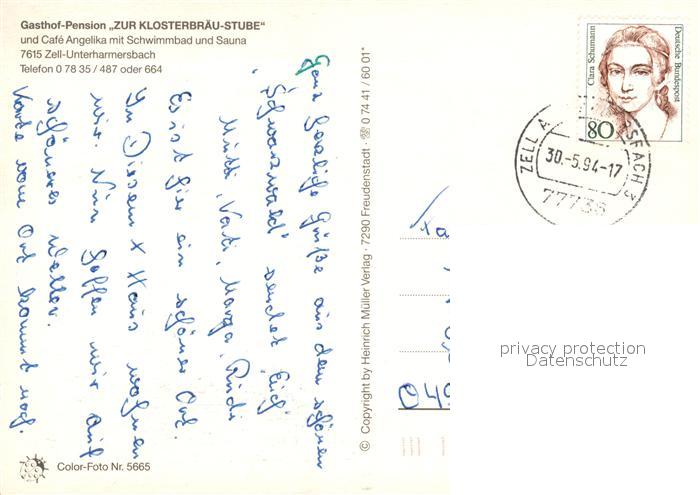 Gasthof-Pension „ZUR KLOSTERBRÄU-STUBE"
und Café Angelika mit Schwimmbad und Sauna
7615 Zell-Unterharmersbach
Telefon 0 78 35 / 487 oder 664
Ganz herzliche Grüße aus dem schönen
„Schwarzwald" sendet Euch
Mutti, Vati, Marga, Rudi
Es ist hier ein schöner Ort.
In Diesem x Haus wohnen
wir. Nun hoffen wir auf
schöneres Wetter.
Karte vom Ort kommt noch.
Color-Foto Nr. 5665
© Copyright by Heinrich Müller Verlag · 7290 Freudenstadt · ☏ 0 74 41 / 60 01*
Clara Schumann
Deutsche Bundespost
80
ZELL A
RSBACH 3
30.-5.94-17
77736
049
privacy protection
Datenschutz